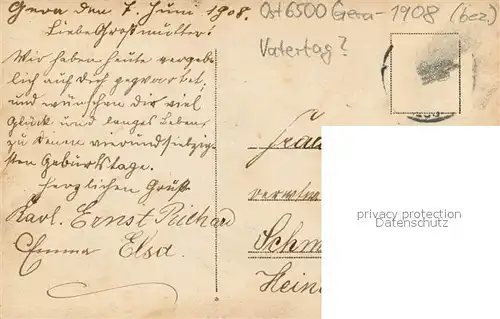 Gera den 7. Juni 1908.
Liebe Großmutter!
Wir haben heute vergeb-
lich auf Dich gewartet,
und wünschen dir viel
Glück und langes Leben
zu Deinem vierundsiebzig-
sten Geburtstage.
Herzlichen Gruß
Karl. Ernst Richard
Emma Elsa.
Ost 6500 Gera - 1908 (bez.)
Vatertag?
Frau
verwitw
Schm
Hein
privacy protection
Datenschutz